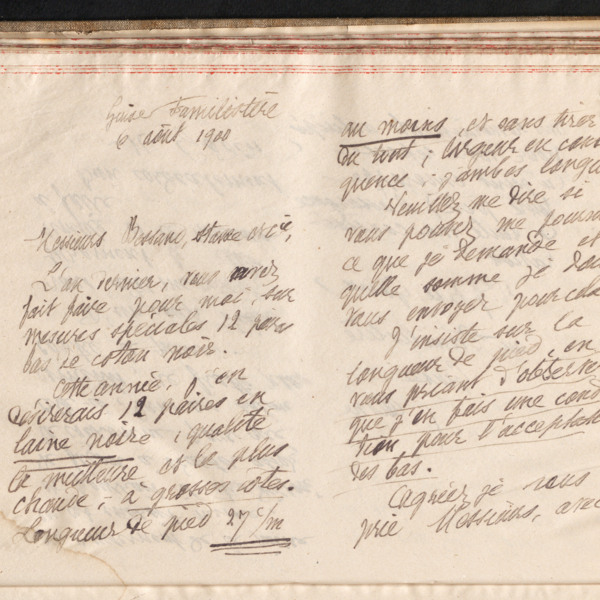 Guise Familistère
6 août 1900
Messieurs
L'an dernier, vous avez
fait faire pour moi, sur
mesures spéciales 12 paires
bas de coton noir.
Cette année, j'en
désirerais 12 paires en
laine noire, qualité
la meilleure et la plus
chaude, à grosses côtes.
Longueur de pied 27 c/m
au moins, et sans tirer
du tout ; largeur en con
quence ; jambes longu
Veuillez me dire si
vous pouvez me fourn
ce que je demande et
quelle somme je doi
vous envoyer pour cela
J'insiste sur la
longueur de pied, en
vous priant d'observe
que j'en fais une cond
tion pour l'acceptat
des bas.
Agréez je vous
prie Messieurs, avec